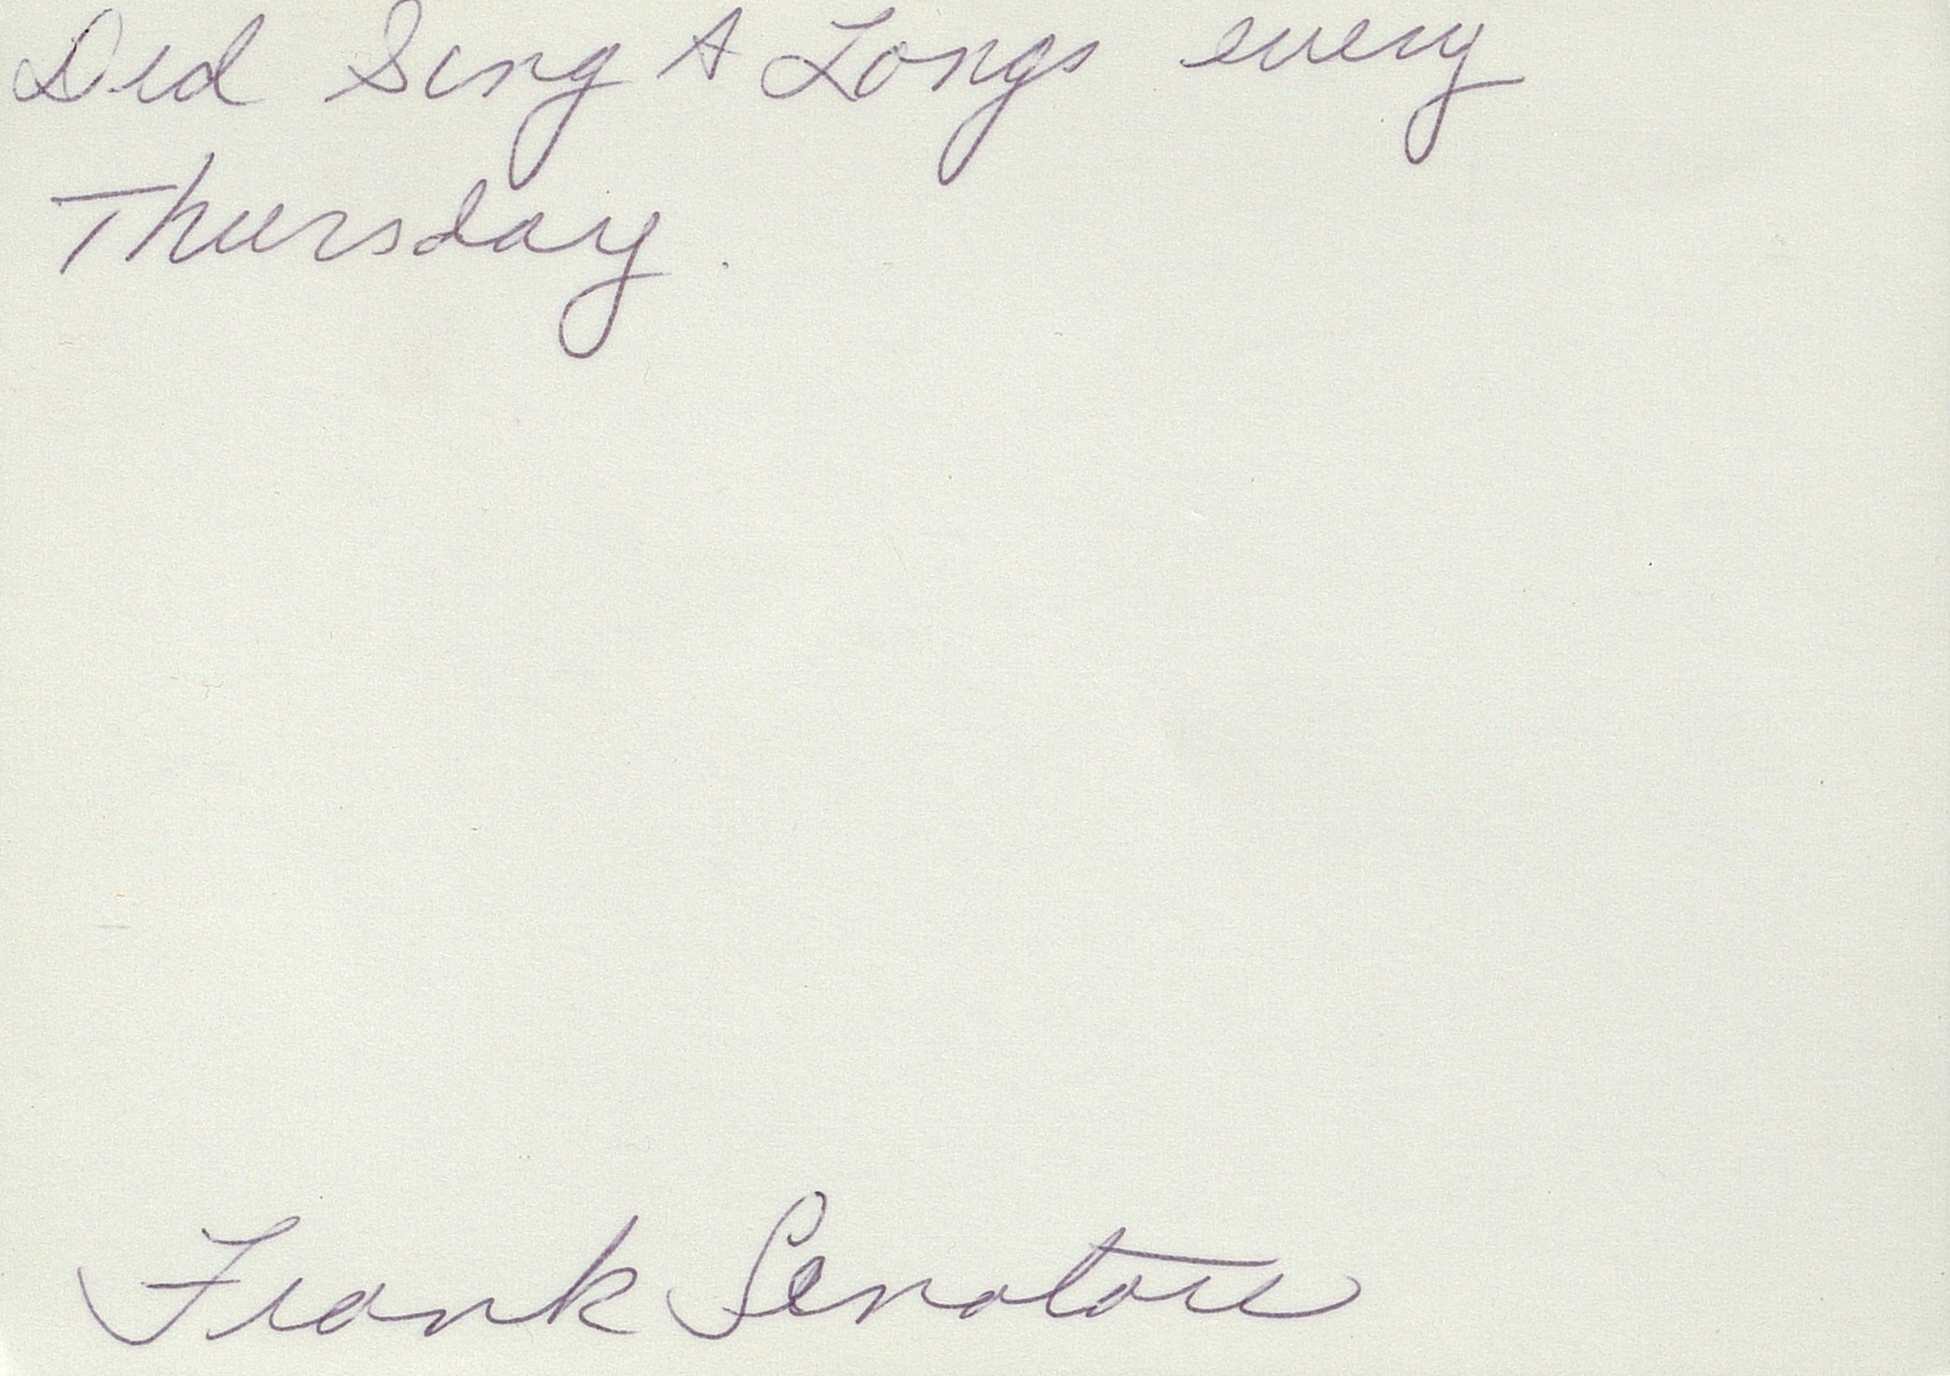 Did Sing A Longs every
Thursday.
Frank Senatore